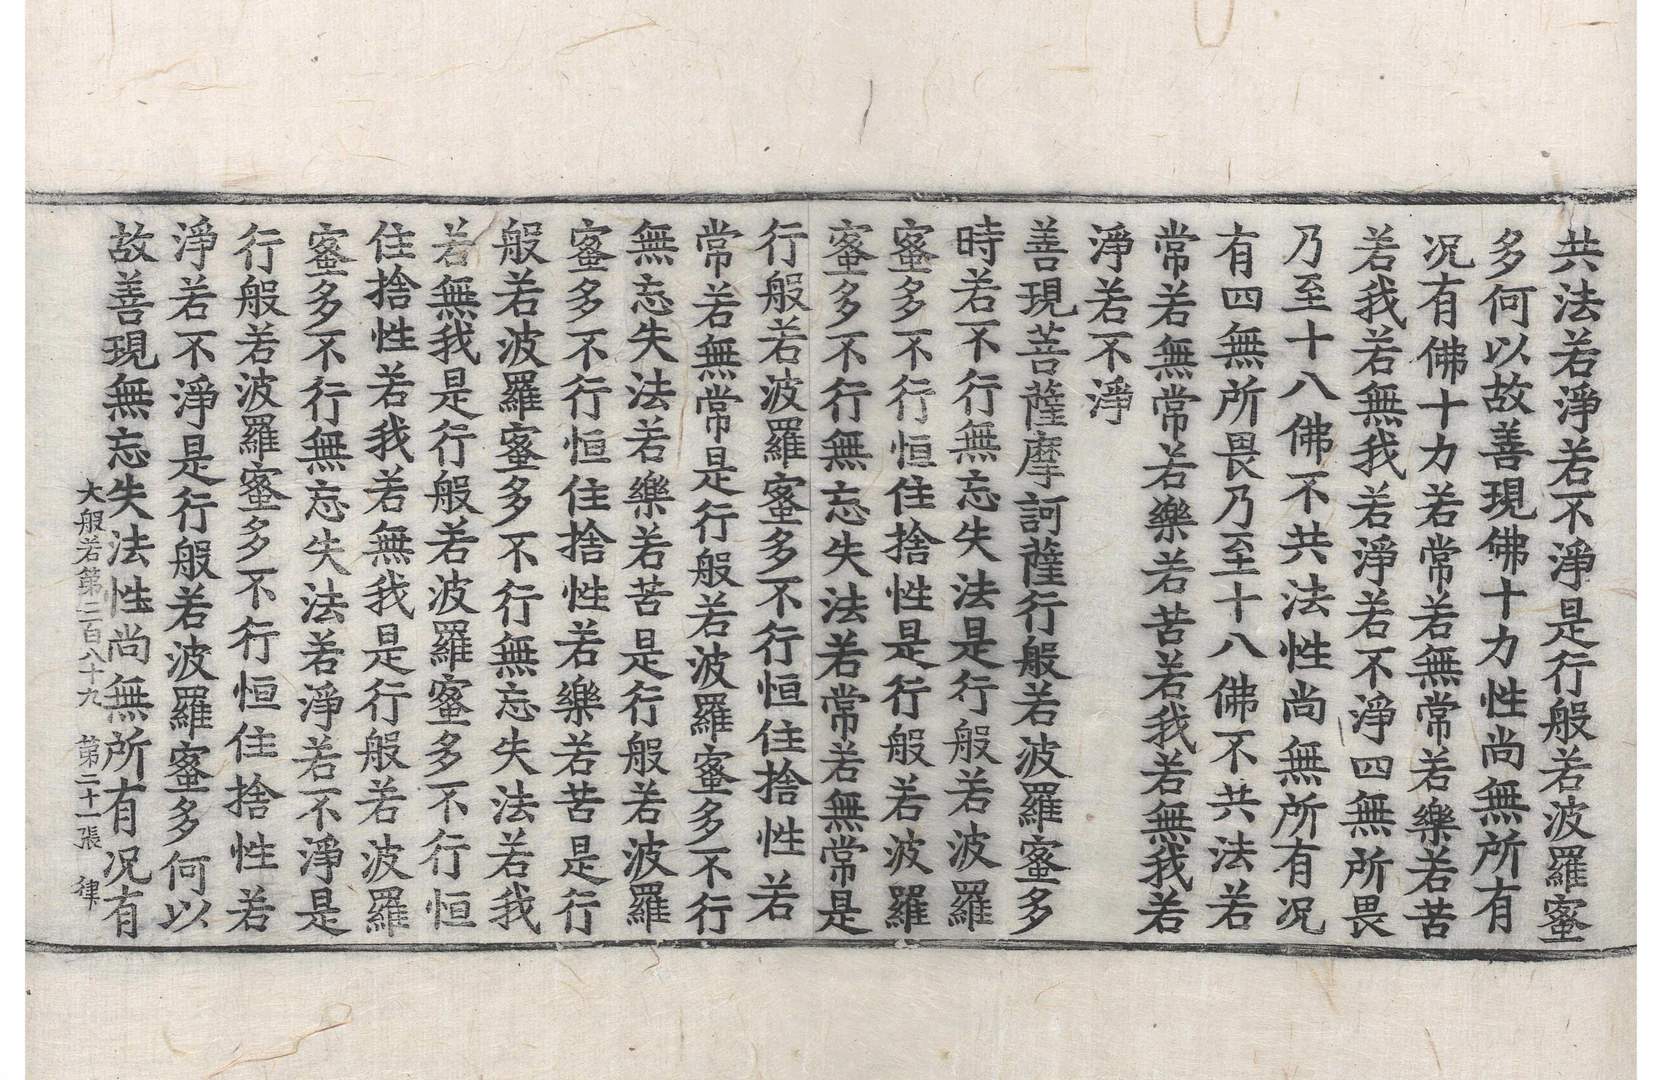 共法若淨若不淨是行般若波羅蜜
多何以故善現佛十力性尚無所有
况有佛十力若常若無常若樂若苦
若我若無我若淨若不淨四無所畏
乃至十八佛不共法性尚無所有况
有四無所畏乃至十八佛不共法若
常若無常若樂若苦若我若無我若
淨若不淨
善現菩薩摩訶薩行般若波羅蜜多
時若不行無忘失法是行般若波羅
蜜多不行恒住捨性是行般若波羅
蜜多不行無忘失法若常若無常是
行般若波羅蜜多不行恒住捨性若
常若無常是行般若波羅蜜多不行
無忘失法若樂若苦是行般若波羅
蜜多不行恒住捨性若樂若苦是行
般若波羅蜜多不行無忘失法若我
若無我是行般若波羅蜜多不行恒
住捨性若我若無我是行般若波羅
蜜多不行無忘失法若淨若不淨是
行般若波羅蜜多不行恒住捨性若
淨若不淨是行般若波羅蜜多何以
故善現無忘失法性尚無所有况有
大般若第二百八十九 第二十一張 律